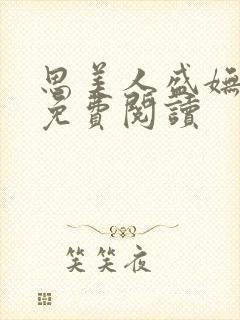 思美人盛嫵
免費閱讀
笑笑夜